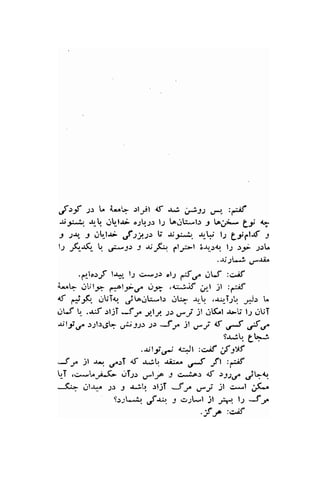 گفتم: پس روشن شد که افراد جامعهٔ ما در کودکی
چه نوع سخن‌ها و داستانها را دربارهٔ خدایان باید بشنوند
و کدام نوع را نباید بشنوند تا بزرگی خدایان و پدر و
مادر خود را بدیدهٔ احترام بنگرند و دوستی با یکدیگر را
مقدس بشمارند.
گفت: گمان می‌کنم راه درست را پیدا کرده‌ایم.
گفتم: از این گذشته، چون می‌خواهیم جوانان جامعهٔ
ما دلیر بار آیند، باید چنان داستانهائی بآنان بگوئیم که
آنان را حتی الامکان از ترس در برابر مرگ آزاد کند. یا گمان
می‌کنی کسی که از ترس مرگ در درونش جای‌دارد می‌تواند
شجاع باشد؟
گلاوکن گفت: البته نمی‌تواند.
گفتم: اگر کسی معتقد باشد که آدمی بعد از مرگ
بجائی می‌رود که دهشت و هراس در آن حکمفرماست، آیا
ممکن است از ترس مرگ آزاد باشد و در میدان جنگ
مرگ را بهتر از اسارت و بندگی بشمارد؟
گفت: هرگز.